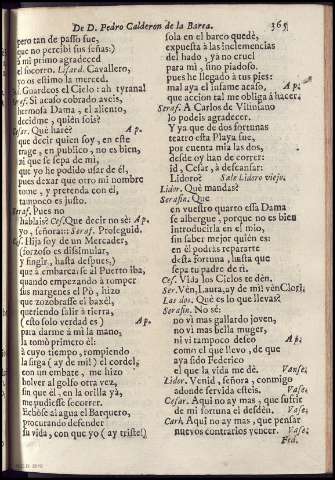 De D. Pedro Calderon de la Barca. 365
pero tan de passo fue,
que no percibi sus señas:)
à mi primo agradeced
el socorro. Lisard. Cavallero,
yo os estimo la merced.
Guardeos el Cielo: ah tyrana!
Seraf. Si acaso cobrado aveis,
hermosa Dama, el aliento,
decidme, quièn sois?
Cesar. Què harè? Ap.
que decir quien soy, en este
trage, en publico, no es bien,
ni que se sepa de mi,
que yo he podido usar de èl,
pues dexar que otro mi nombre
tome, y pretenda con èl,
tampoco es justo.
Seraf. Pues no
hablais? Ces. Que decir no sè: Ap.
yo, señora::: Seraf. Proseguid.
Ces. Hija soy de un Mercader,
(forzoso es dissimular,
y fingir, hasta despues,)
que à embarcarse al Puerto iba,
quando empezando à romper
sus margenes el Pò, hizo
que zozobrasse el baxèl,
queriendo salir à tierra,
(esto solo verdad es) Ap.
para darme à mi la mano,
la tomò primero èl:
à cuyo tiempo, rompiendo
la sirga (ay de mi!) el cordel,
con un embate, me hizo
bolver al golfo otra vez,
sin que èl, en la orilla yà,
me pudiesse socorrer.
Echòse al agua el Barquero,
procurando defender
su vida, con que yo (ay triste!)
sola en el barco quedè,
expuesta à las inclemencias
del hado, yà no cruel
para mi, sino piadoso,
pues he llegado à tus pies:
mal aya el infame acaso, Ap.
que accion tal me obliga à hacer.
Seraf. A Carlos de Vitiniano
lo podeis agradecer.
Y ya que de dos fortunas
teatro esta Playa fue,
por cuenta mia las dos,
desde oy han de correr:
id, Cesar, à descansar:
Lidoro? Sale Lidoro viejo.
Lidor. Què mandas?
Serafin. Que
en vuestro quarto essa Dama
se albergue, porque no es bien
introducirla en el mio,
sin saber mejor quièn es:
en èl podràs repararte
desta fortuna, hasta que
sepa tu padre de ti.
Ces. Vida los Cielos te dèn.
Ser. Vèn, Laura, ay de mi! vèn Clori.
Las dos. Què es lo que llevas?
Serafin. No sè:
no vi mas gallardo joven,
no vi mas bella muger,
ni vi tampoco deseo Ap.
como el que llevo, de que
aya sido Federico
el que la vida me dè. Vanse.
Lidor. Venid, señora, conmigo
adonde servida esteis. Vase.
Cesar. Aqui no ay mas, que sufrir
de mi fortuna el desdèn. Vase.
Carl. Aqui no ay mas, que pensar
nuevos contrarios vencer. Vase.
Fed.